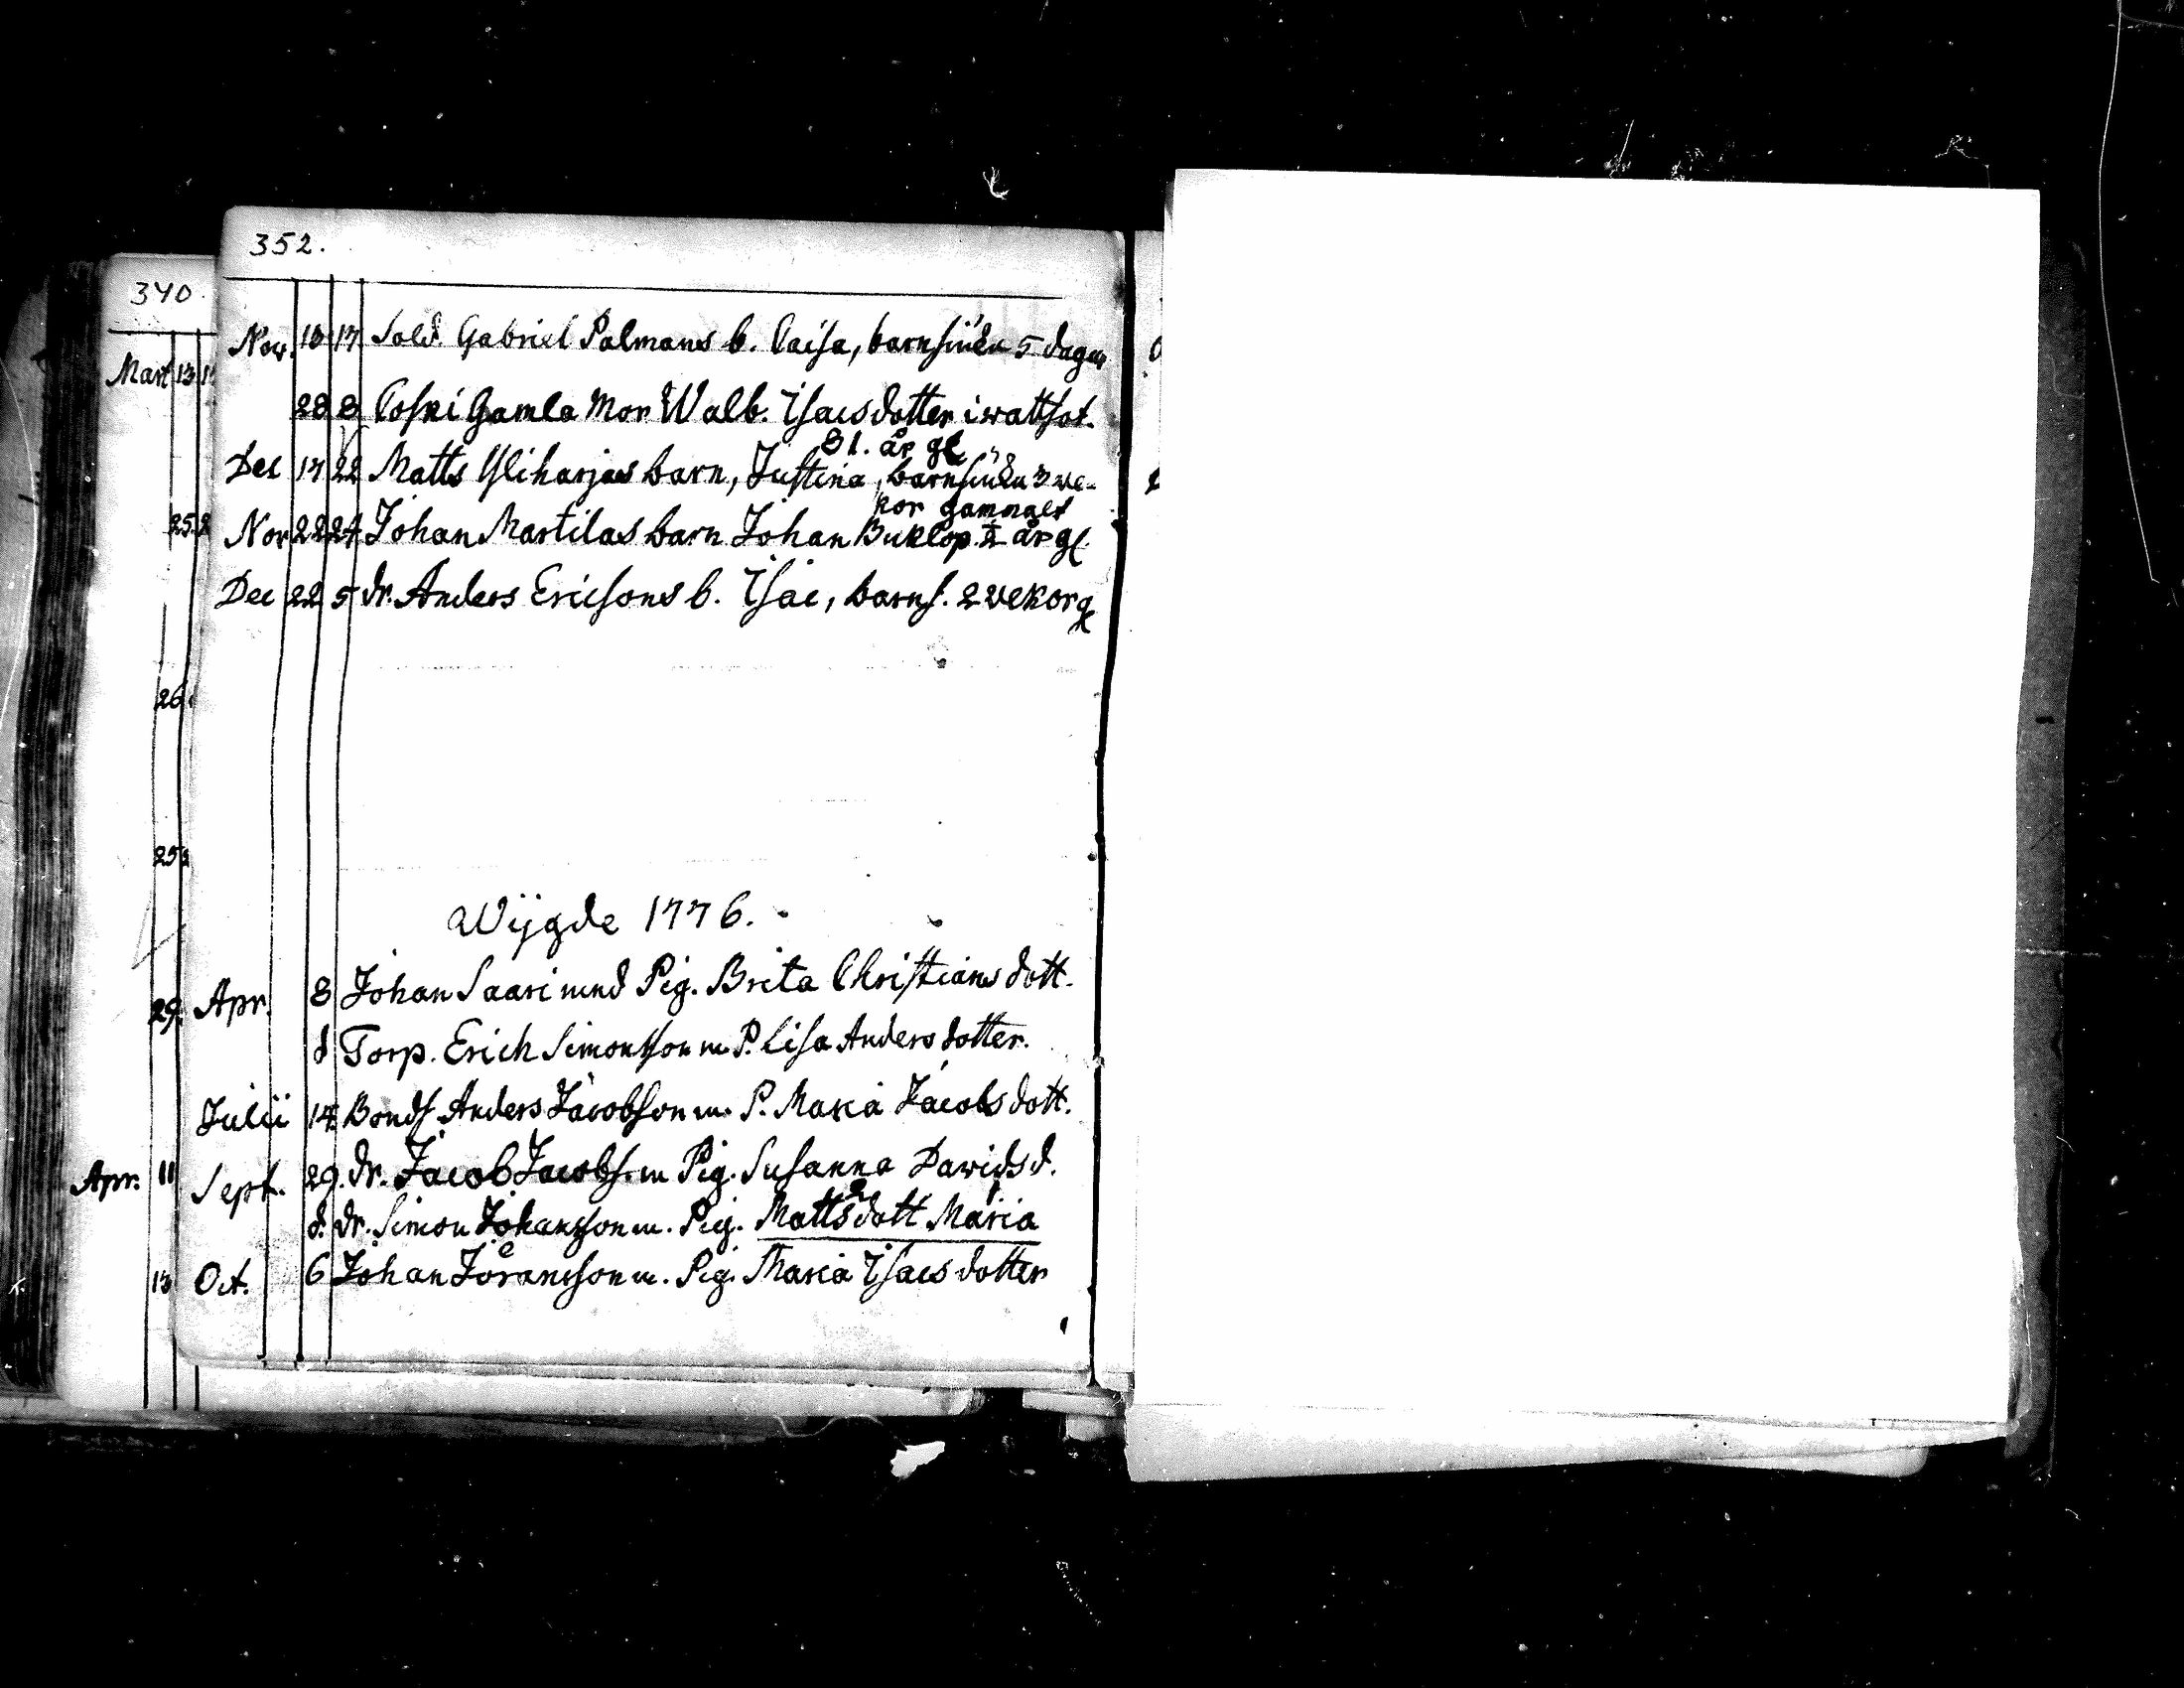 352.
Nov. 10 17 Sold. Gabriel Palmans b. Caisa, barnsiuka 5 dagar
28 8 Coski Gamla Mor Walb. Isacsdotter i wattsot.
81. år gl
Dec 17 22 Matts Yliharjas barn, Justina, barnsiuka 3 we-
kor gammalt
Nov 22 24 Johan Martilas barn Johan Buklop. år gl.
Dec 22 5 dr. Anders Ericsons b. Isac, barns. 2 wekor g
Wijgde 1776.
Apr. 8 Johan Saari med Pig. Brita Christians dott.
d Torp. Erich Simonsson m. P. Lisa Anders dotter.
Julii 14 Bonds. Anders Jacobson m. P. Maria Jacobs dott.
Sept. 29. dr. Jacob Jacobs. m Pig. Susanna Dawids d.
d. dr. Simon Johansson m. Pig. Matts dott Maria
Oct. 6 Johan Jöransson m. Pig. Maria Isacs dotter
340.
Mart 13
25
26
25
29.
Apr. 11
13